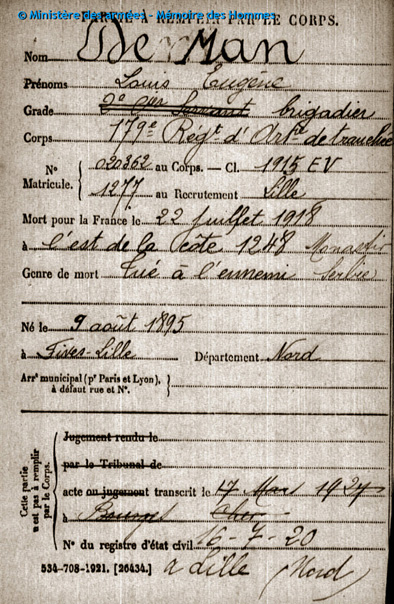 © Ministère des armées - Mémoire des Hommes
PARTIE À REMPLIR PAR LE CORPS.
Nom De Man
Prénoms Louis Eugène
Grade 2e Servant brigadier
Corps 179e Régt d'Artie de tranchée
No Matricule. 020362 au Corps. — Cl. 1915 EV
1277 au Recrutement Lille
Mort pour la France le 22 Juillet 1918
à l'est de la Cote 1248 Monastir
Genre de mort Tué à l'ennemi Serbie
Né le 9 août 1895
à Fives-Lille Département Nord
Arrt municipal (pr Paris et Lyon),
à défaut rue et No.
Cette partie n'est pas à remplir par le Corps.
Jugement rendu le
par le Tribunal de
acte ou jugement transcrit le 17 Mars 1927
à Bourges Cher
No du registre d'état civil 16-7-20
534-708-1921. [26434.] à Lille Nord